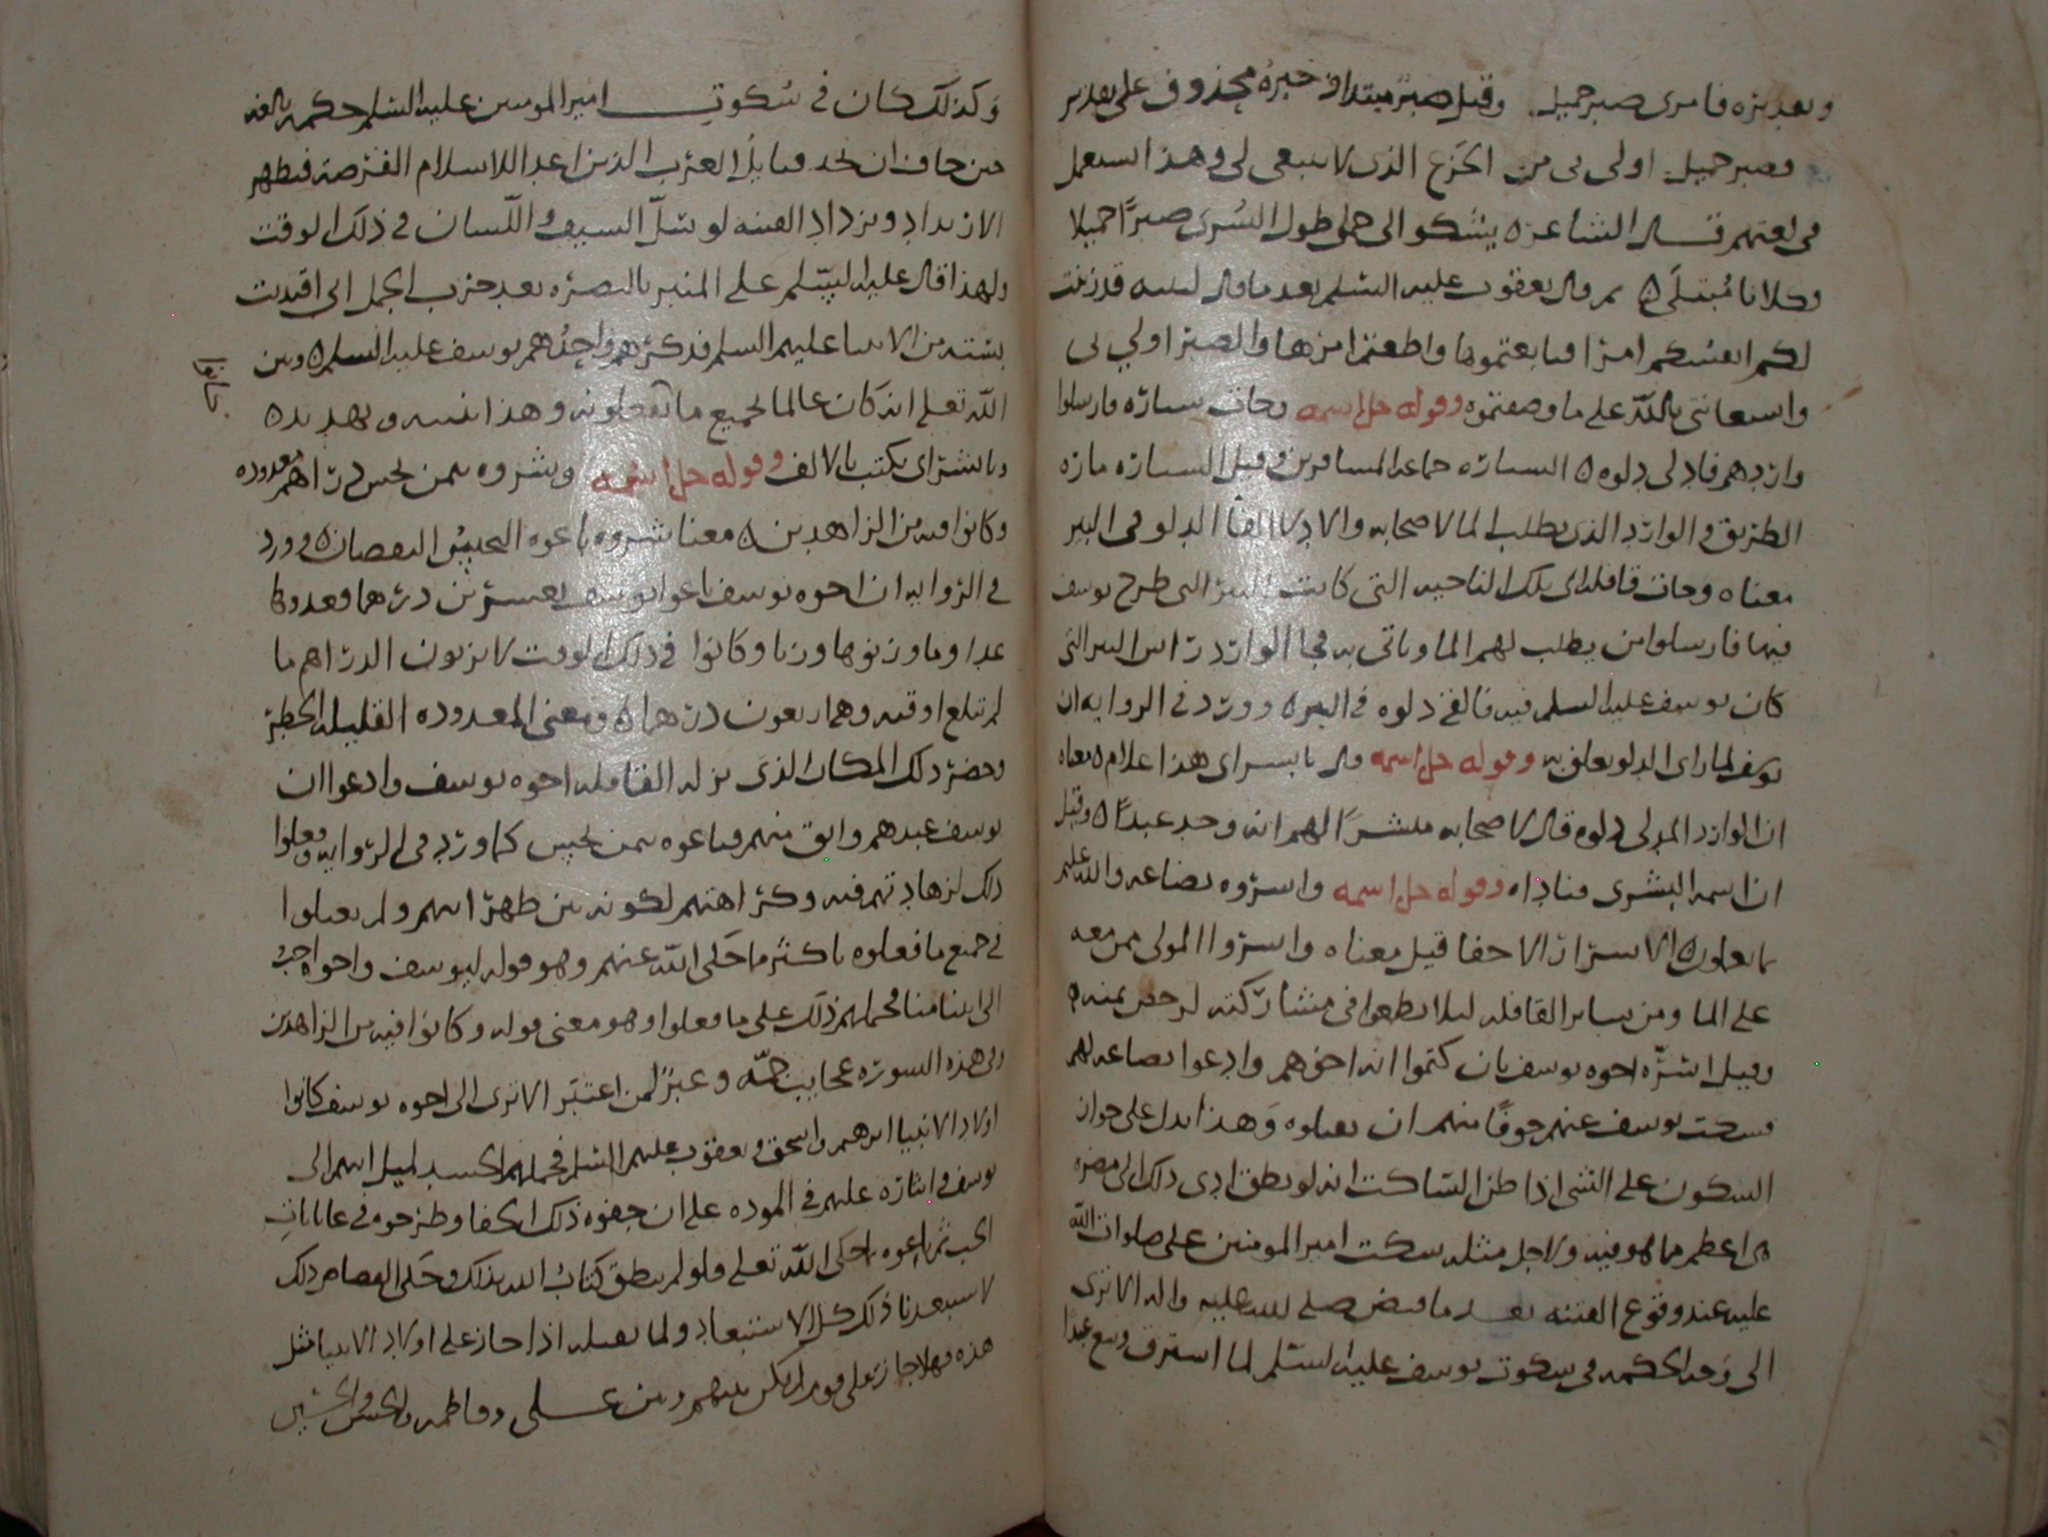 وتقديره فامرى صبر جميل وقيل صبر مبتدا وخبره محذوف على تقدير
فصبر جميل اولى بى من الجزع الذى لا ينبغى لى وهذا استعمل
فى لغتهم قال الشاعر ه يشكو الى جملى طول السرى صبرًا جميلا
وكلانا مبتلى ه ثم قال يعقوب عليه السلم بعد ما قال لبنيه قد زينت
لكم انفسكم امرًا فبايعتموها واطعتم امرها والصبر اولى بى
واستعانتى بالله على ما وصفتموه وقوله جل اسمه وجات سيارة فارسلوا
واردهم فادلى دلوه ه السيارة جماعة المسافرين وقيل السيارة مارة
الطريق والوارد الذى يطلب الما لاصحابه والادلا القا الدلو فى البير
معناه وجات قافلة الى تلك الناحية التى كانت البير التى طرح يوسف
فيها فارسلوا من يطلب لهم الما وياتى به فجا الوارد راس البير التى
كان يوسف عليه السلم فيه فالقى دلوه فى البير ه وورد فى الرواية ان
يوسف لما راى الدلو تعلق به وقوله جل اسمه قال يا بشراى هذا غلام ه معناه
ان الوارد المدلى دلوه قال لاصحابه مبشرًا لهم انه وجد عبدًا ه وقيل
ان اسمه البشرى فناداه وقوله جل اسمه واسروه بضاعة والله عليم
بما يعملون ه الاسرار الاخفا قيل معناه واسروا المولى ممن معه
على الما ومن ساير القافلة ليلا يطمعوا فى مشاركته لرخص ثمنه ه
وقيل اسره اخوة يوسف بان كتموا انه اخوهم وادعوا بضاعة لهم
فسكت يوسف عنهم خوفًا منهم ان يقتلوه وهذا يدل على جواز
السكوت على الشى اذا ظن الساكت انه لو نطق ادى ذلك الى مضرة
هى اعظم مما هو فيه ولاجل مثله سكت امير المومنين على صلوات الله
عليه عند وقوع الفتنة بعد ما قبض صلى الله عليه واله الا ترى
الى وجه الحكمة فى سكوت يوسف عليه السلم لما استرق وبيع عبدًا
وكذلك كان فى سكوت امير المومنين عليه السلم حكمة بالغة
حين خاف ان تجد قبايل العرب الذين اعدا للاسلام الفرصة فيظهر
الارتداد ويزداد الفتنة لو سل السيف واللسان فى ذلك الوقت
ولهذا قال عليه السلم على المنبر بالبصرة بعد حرب الجمل انى اقتديت
بستة من الانبيا عليهم السلم فذكرهم واحدهم يوسف عليه السلم ه وبين
الله تعلى انه كان عالما بجميع ما يفعلونه وهذا تنبيه وتهديد ه
ويا بشراى يكتب بالالف وقوله جل اسمه وشروه بثمن بخس دراهم معدودة
وكانوا فيه من الزاهدين ه معنا شروه باعوه البخس النقصان ه وورد
فى الرواية ان اخوة يوسف باعوا يوسف بعشرين درهما فعدوها
عدا وما وزنوها وزنا وكانوا فى ذلك الوقت لا يزنون الدراهم ما
لم تبلغ اوقية وهى اربعون درهما ه ومعنى المعدودة القليلة الخطر
وحضر ذلك المكان الذى نزله القافلة اخوة يوسف وادعوا ان
يوسف عبدهم وابق منهم فباعوه بثمن بخس كما ورد فى الرواية وفعلوا
ذلك لزهادتهم فيه وكراهتهم لكونه بين ظهرانيهم ولم يعملوا
فى جميع ما فعلوه باكثر ما حكى الله عنهم وهو قوله ليوسف واخوه احب
الى ابينا منا فحملهم ذلك على ما فعلوا وهو معنى قوله وكانوا فيه من الزاهدين
وفى هذه السورة عجايب جمة وعبر لمن اعتبر الا ترى الى اخوة يوسف كانوا
اولاد الانبيا ابرهيم واسحق ويعقوب عليهم السلم فحملهم الحسد لميل ابيهم الى
يوسف وايثاره عليهم فى المودة على ان جفوه ذلك الجفا وطرحوه فى غيابات
الجب ثم باعوه حكى الله تعلى فلو لم ينطق كتاب الله بذلك وحكى القصاص ذلك
لاستبعدنا ذلك كل الاستبعاد ولما نقبله اذا جاز على اولاد الانبيا مثل
هذه فهلا جاز على قوم لم يكن بينهم وبين على وفاطمة والحسن والحسين